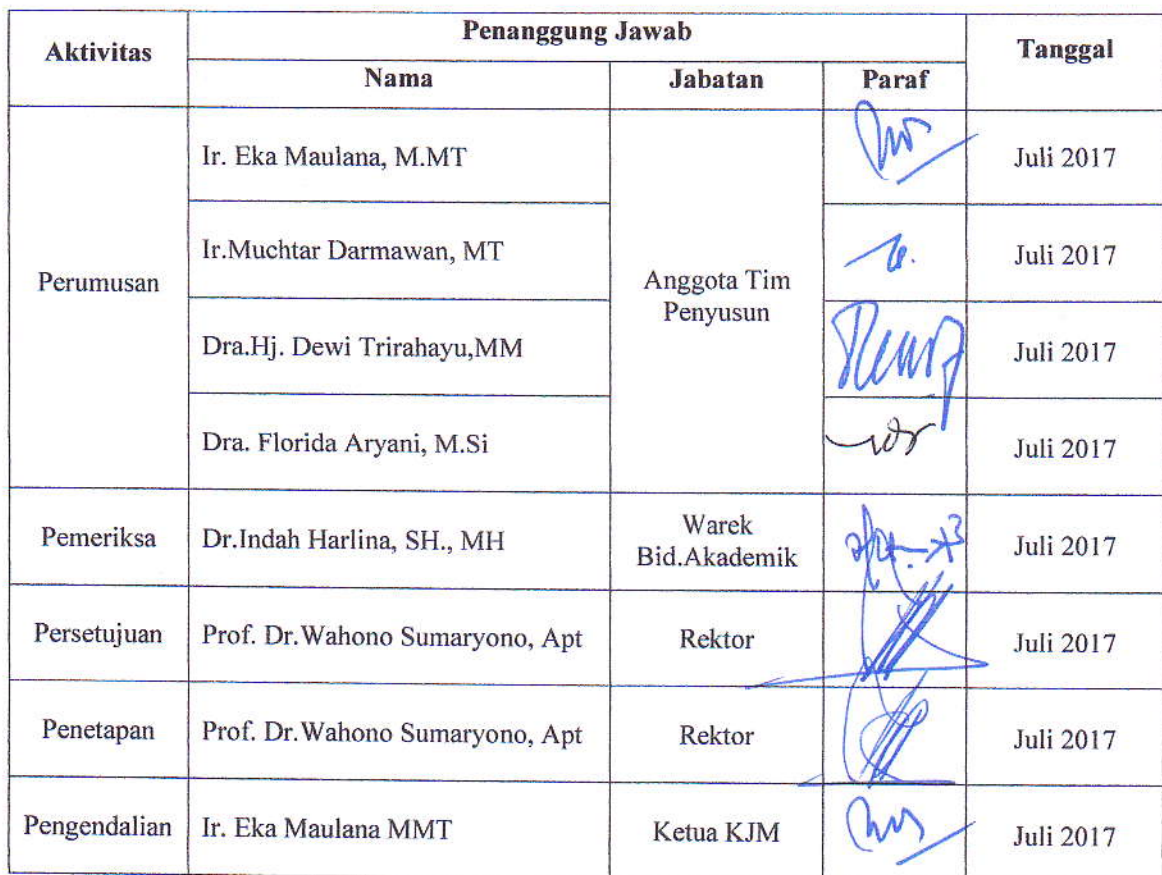 Aktivitas
Penanggung Jawab
Tanggal
Nama
Jabatan
Paraf
Perumusan
Ir. Eka Maulana, M.MT
Anggota Tim
Penyusun
Juli 2017
Ir.Muchtar Darmawan, MT
Juli 2017
Dra.Hj. Dewi Trirahayu,MM
Juli 2017
Dra. Florida Aryani, M.Si
Juli 2017
Pemeriksa
Dr.Indah Harlina, SH., MH
Warek
Bid.Akademik
Juli 2017
Persetujuan
Prof. Dr.Wahono Sumaryono, Apt
Rektor
Juli 2017
Penetapan
Prof. Dr.Wahono Sumaryono, Apt
Rektor
Juli 2017
Pengendalian
Ir. Eka Maulana MMT
Ketua KJM
Juli 2017